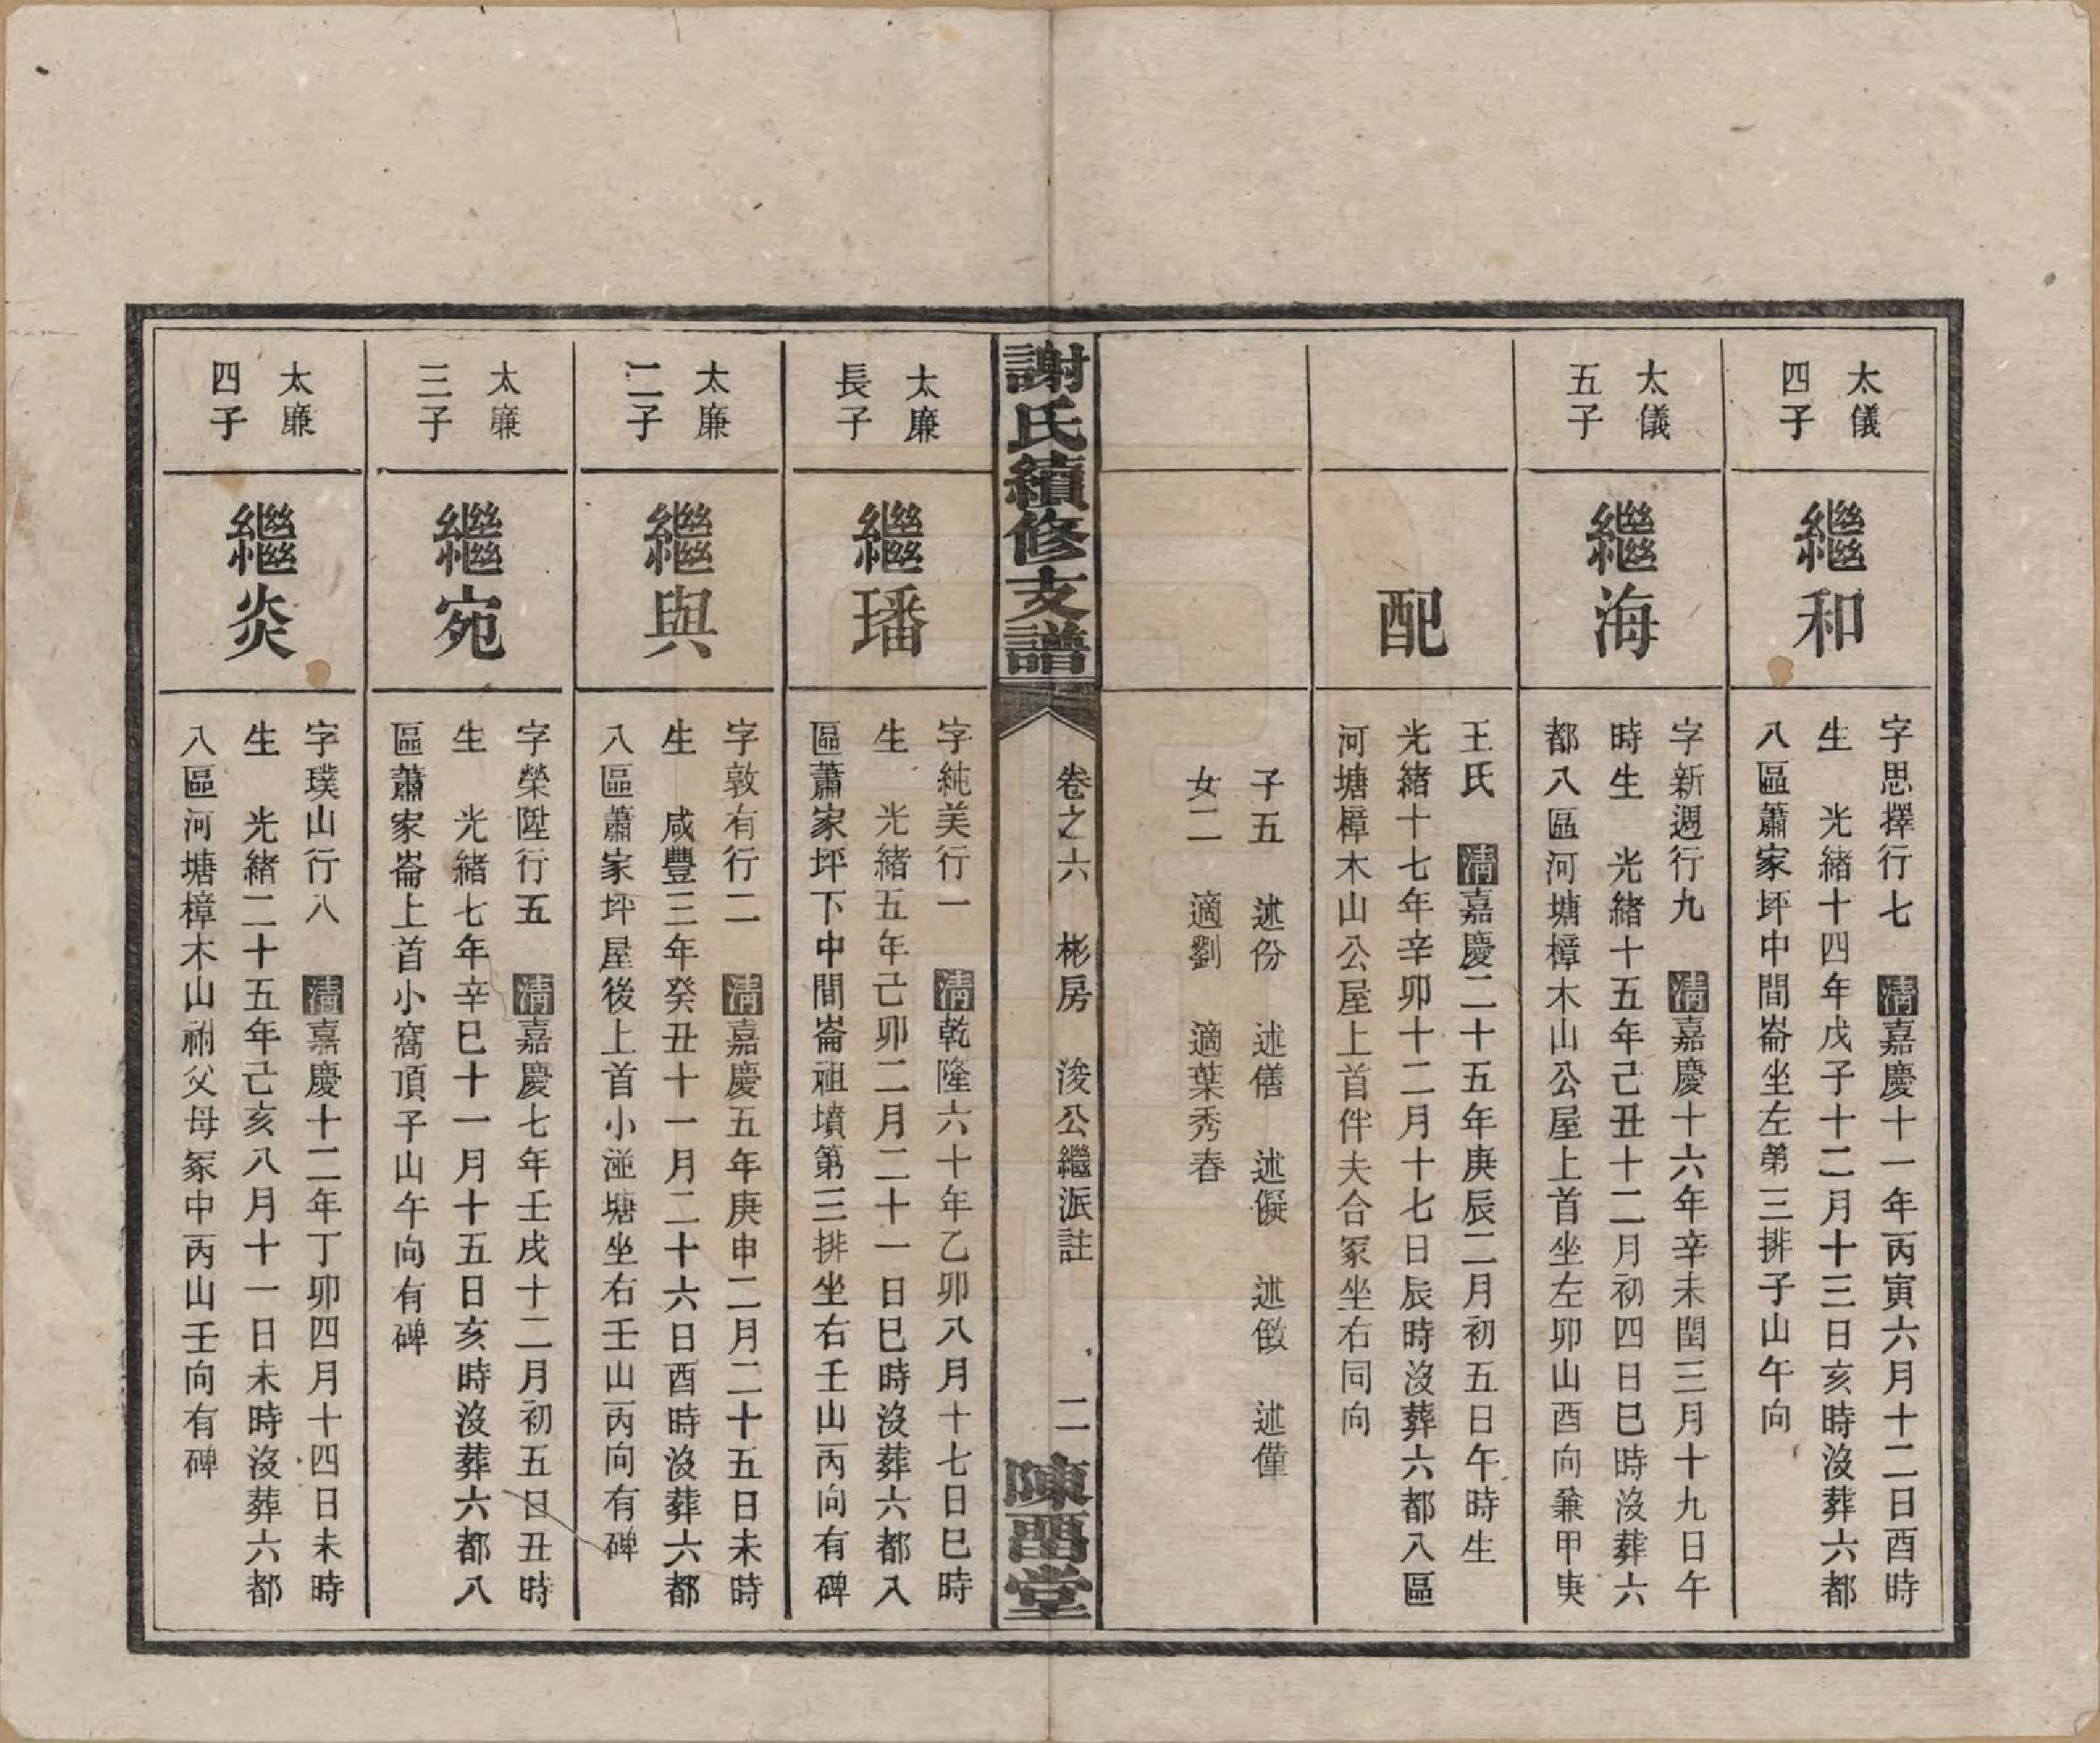 太儀
四子
繼和
字思擇行七　清嘉慶十一年丙寅六月十二日酉時
生　光緒十四年戊子十二月十三日亥時沒葬六都
八區蕭家坪中間崙坐左第三排子山午向
太儀
五子
繼海
字新週行九　清嘉慶十六年辛未閏三月十九日午
時生　光緒十五年己丑十二月初四日巳時沒葬六
都八區河塘樟木山公屋上首坐左卯山酉向兼甲庚
配
王氏　清嘉慶二十五年庚辰二月初五日午時生
光緒十七年辛卯十二月十七日辰時沒葬六都八區
河塘樟木山公屋上首伴夫合冢坐右同向
子五　述份　述僐　述儗　述俶　述僅
女二　適劉　適葉秀春
謝氏續修支譜
卷之六　彬房　浚公繼派註　二
陳畱堂
太廉
長子
繼璠
字純美行一　清乾隆六十年乙卯八月十七日巳時
生　光緒五年己卯二月二十一日巳時沒葬六都八
區蕭家坪下中間崙祖墳第三排坐右壬山丙向有碑
太廉
二子
繼與
字敦有行二　清嘉慶五年庚申二月二十五日未時
生　咸豐三年癸丑十一月二十六日酉時沒葬六都
八區蕭家坪屋後上首小湴塘坐右壬山丙向有碑
太廉
三子
繼宛
字榮陞行五　清嘉慶七年壬戌十二月初五日丑時
生　光緒七年辛巳十一月十五日亥時沒葬六都八
區蕭家崙上首小窩頂子山午向有碑
太廉
四子
繼炎
字璞山行八　清嘉慶十二年丁卯四月十四日未時
生　光緒二十五年己亥八月十一日未時沒葬六都
八區河塘樟木山祔父母冢中丙山壬向有碑